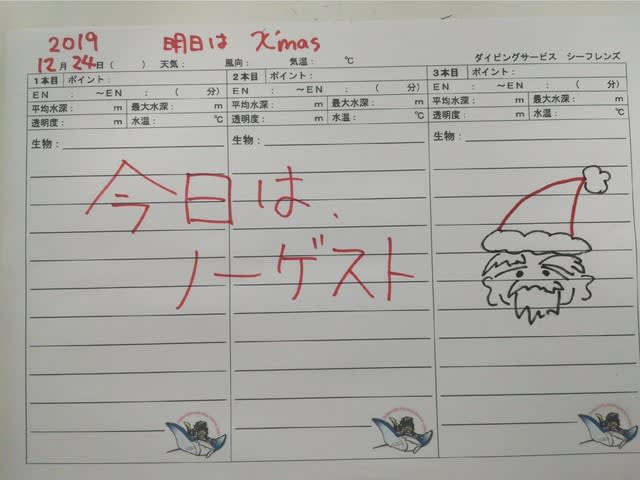 2019 明日は X'mas
ダイビングサービス シーフレンズ
12月 24日( ) 天気: 風向: 気温: ℃
1本目 ポイント:
EN : ～EN : ( 分)
平均水深: m 最大水深: m
透明度: m 水温: ℃
生物:
2本目 ポイント:
EN : ～EN : ( 分)
平均水深: m 最大水深: m
透明度: m 水温: ℃
生物:
3本目 ポイント:
EN : ～EN : ( 分)
平均水深: m 最大水深: m
透明度: m 水温: ℃
生物:
今日は、
ノーゲスト